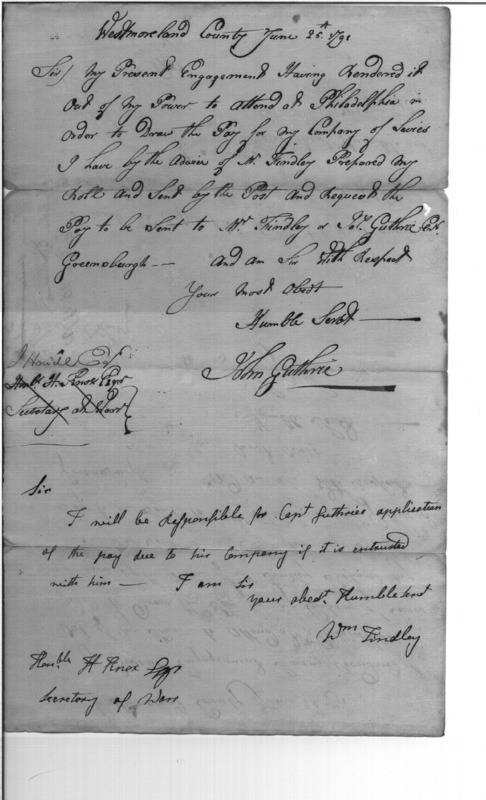 Westmoreland County June 25th 1792
Sir/ My Present Engagement Having Rendered it
Out of My Power to attend at Philadelphia in
order to Draw the Pay for my Company of Levies
I have by the Advice of Mr Findley Prepared my
Roll And Sent by the Post And Request the
Pay to be Sent to Mr Findley or Jos. Guthrie Esqr.
Greensburgh — And am Sir With Respect
Your Most Obedt
Humble Servt
John Guthrie
J Howell Esqr
Honble H. Knox Esqr
Secretary at Warr
Sir
I will be Responsible for Capt Guthries application
of the pay due to his Company if it is entrusted
with him — I am Sir
your obedt. Humble Servt
Wm Findley
Honble H Knox Esqr
Secretary of Warr